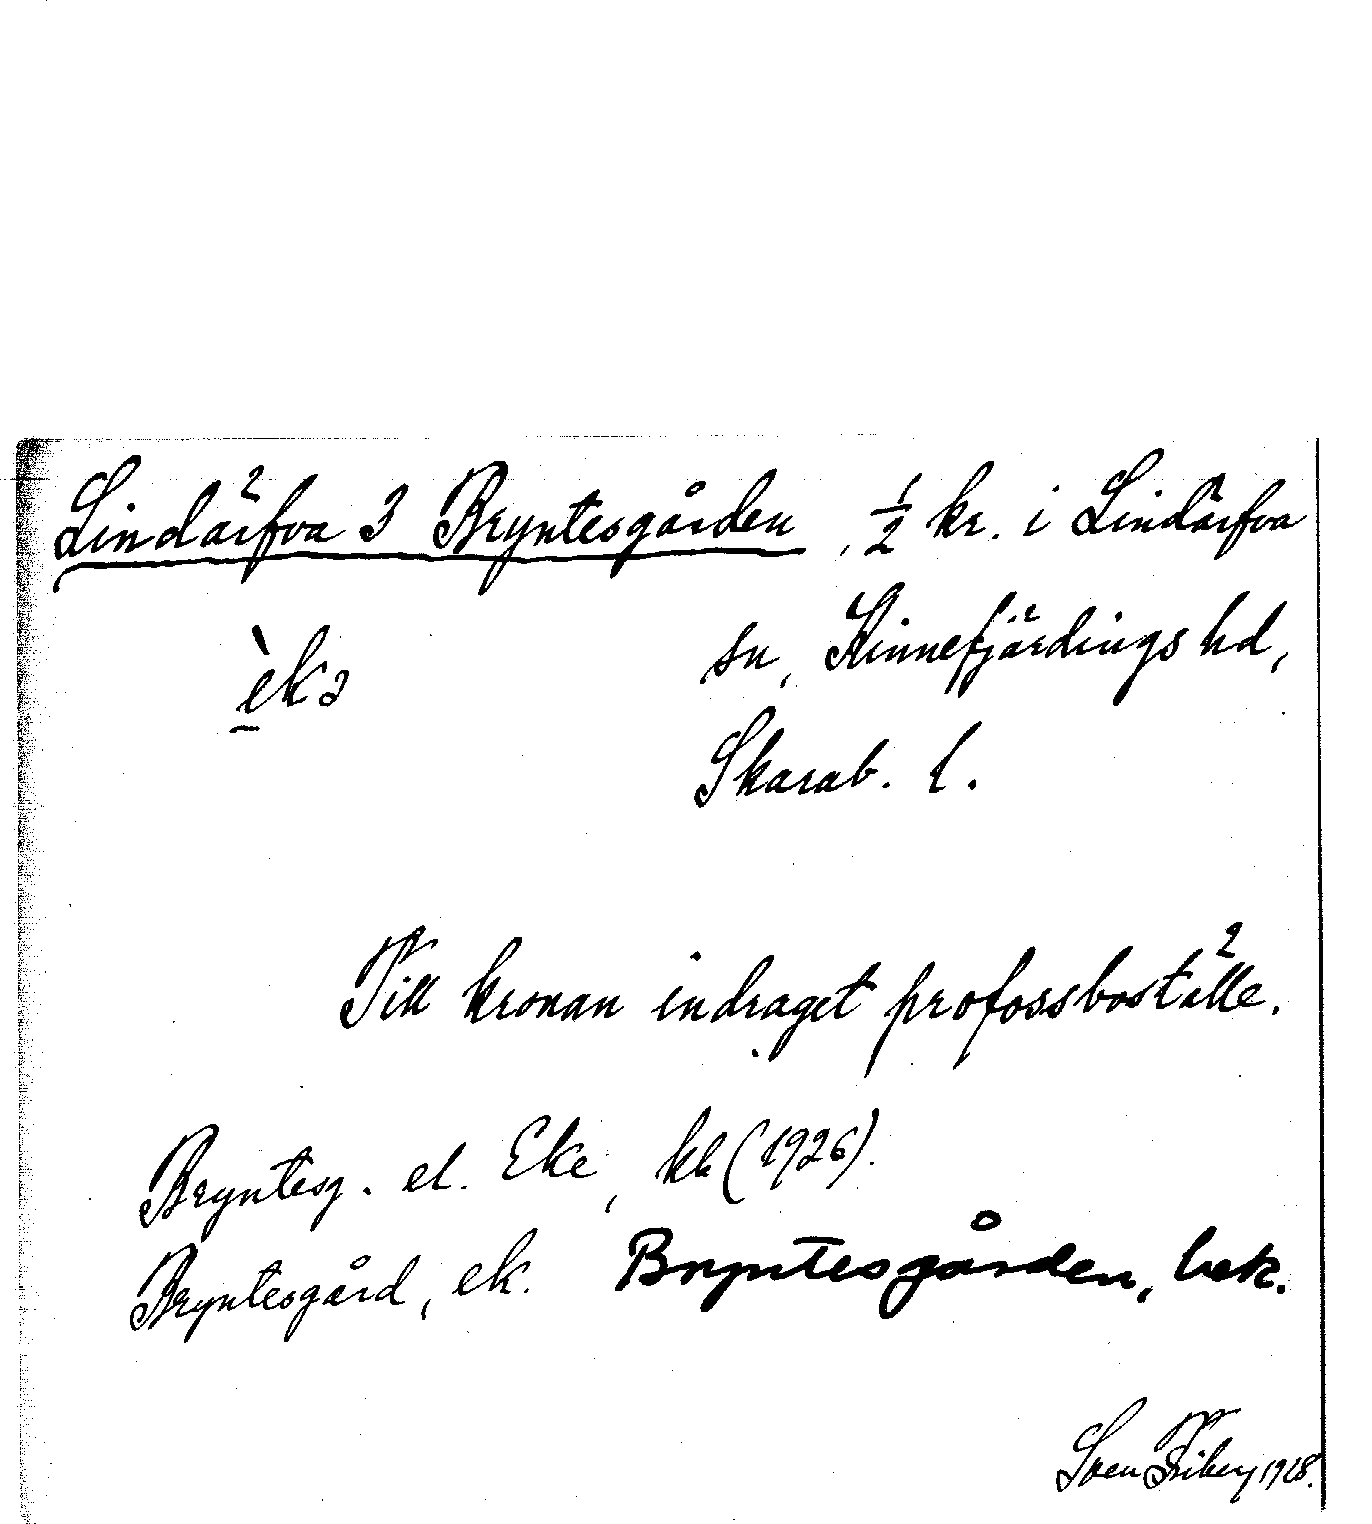 Lindärfva 3 Bryntesgården, 1/2 kr. i Lindärfva
èkə sn, Kinnefjärdings hd,
Skarab. l.
Till kronan indraget profossboställe.
Bryntesg. el. Eke, kb (1926).
Bryntesgård, ek. Bryntesgården, bek.
Sven Friberg 1928.